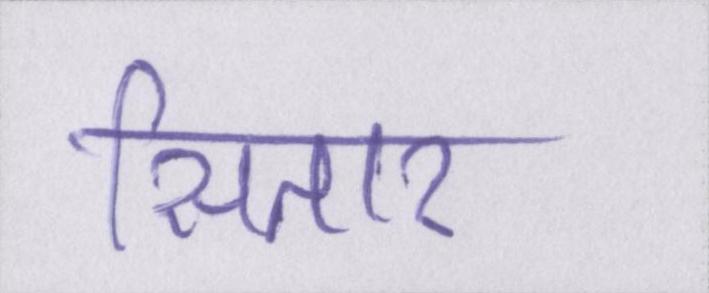 सितार